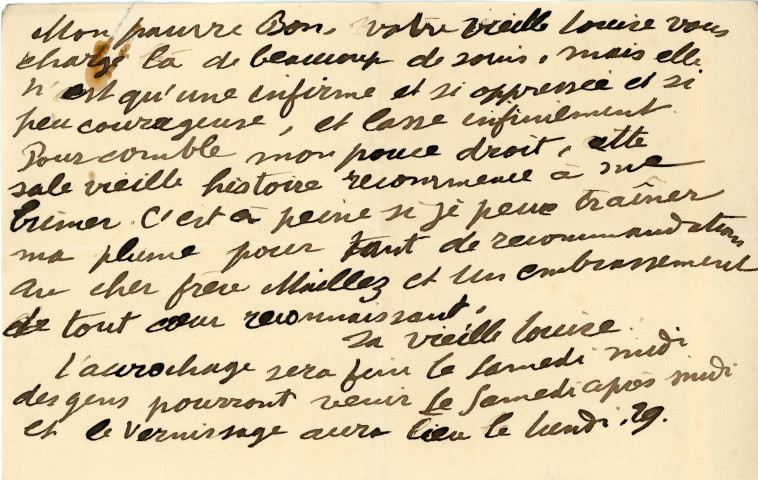 Mon pauvre Bon, votre vieille Louise vous
charge là de beaucoup de soucis, mais elle
n'est qu'une infirme et si oppressée et si
peu courageuse, et lasse infiniment.
Pour comble mon pouce droit, cette
sale vieille histoire recommence à me
brimer. C'est à peine si je peux traîner
ma plume pour tant de recommandations
au cher frère Maillez et un embrassement
de tout cœur reconnaissant,
sa vieille Louise.
L'accrochage sera fini le Samedi midi
des gens pourront venir le Samedi après midi
et le Vernissage aura lieu le lundi. 29.